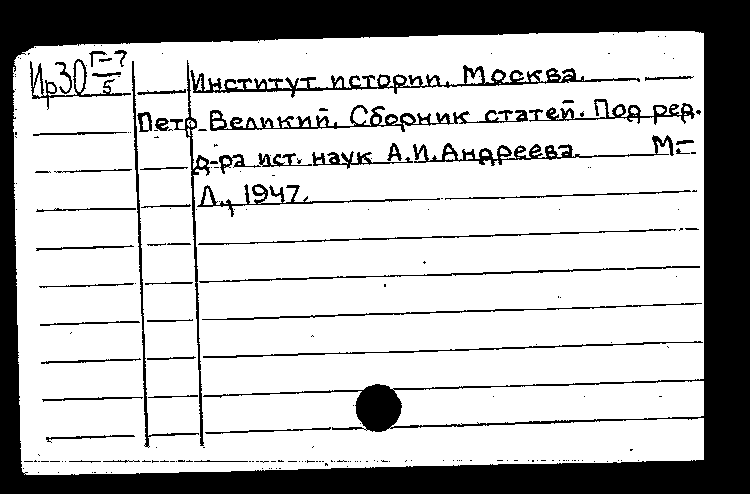 Ир30 Г-7/5
Институт истории. Москва.
Петр Великий. Сборник статей. Под ред.
д-ра ист. наук А.И.Андреева. М.-
Л., 1947.